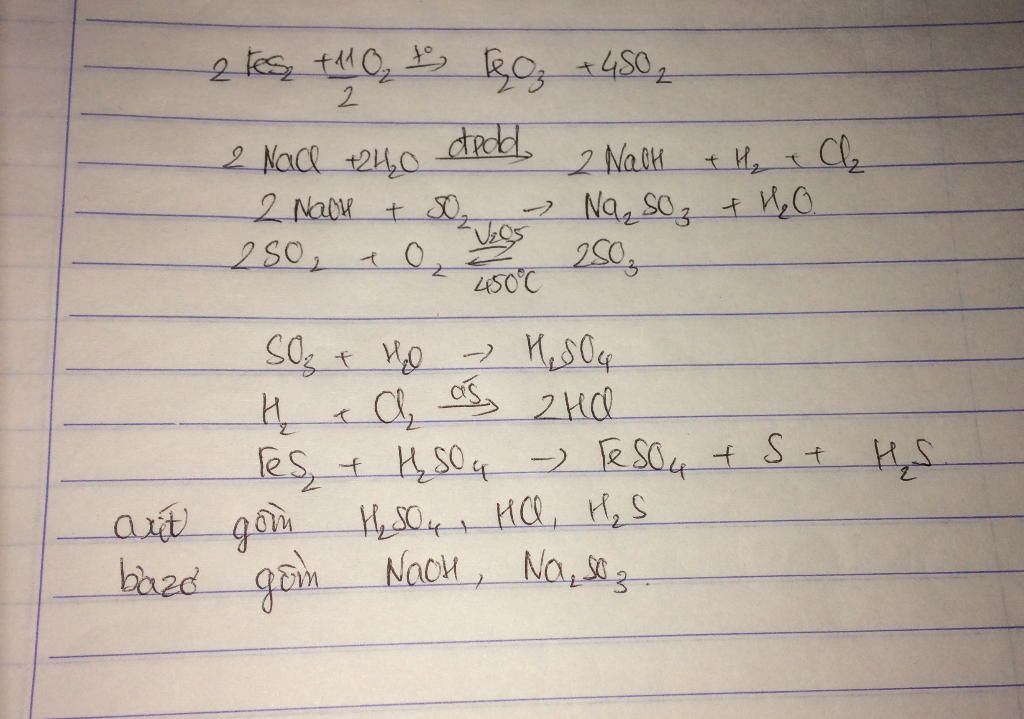 2 FeS₂ + 11/2 O₂ →(t°) Fe₂O₃ + 4SO₂
2 NaCl + 2H₂O →(đpdd) 2 NaOH + H₂ + Cl₂
2 NaOH + SO₂ → Na₂SO₃ + H₂O.
2SO₂ + O₂ ⇌(V₂O₅, 450°C) 2SO₃
SO₃ + H₂O → H₂SO₄
H₂ + Cl₂ →(ás) 2HCl
FeS₂ + H₂SO₄ → FeSO₄ + S + H₂S
axít gồm H₂SO₄, HCl, H₂S
bazơ gồm NaOH, Na₂SO₃.